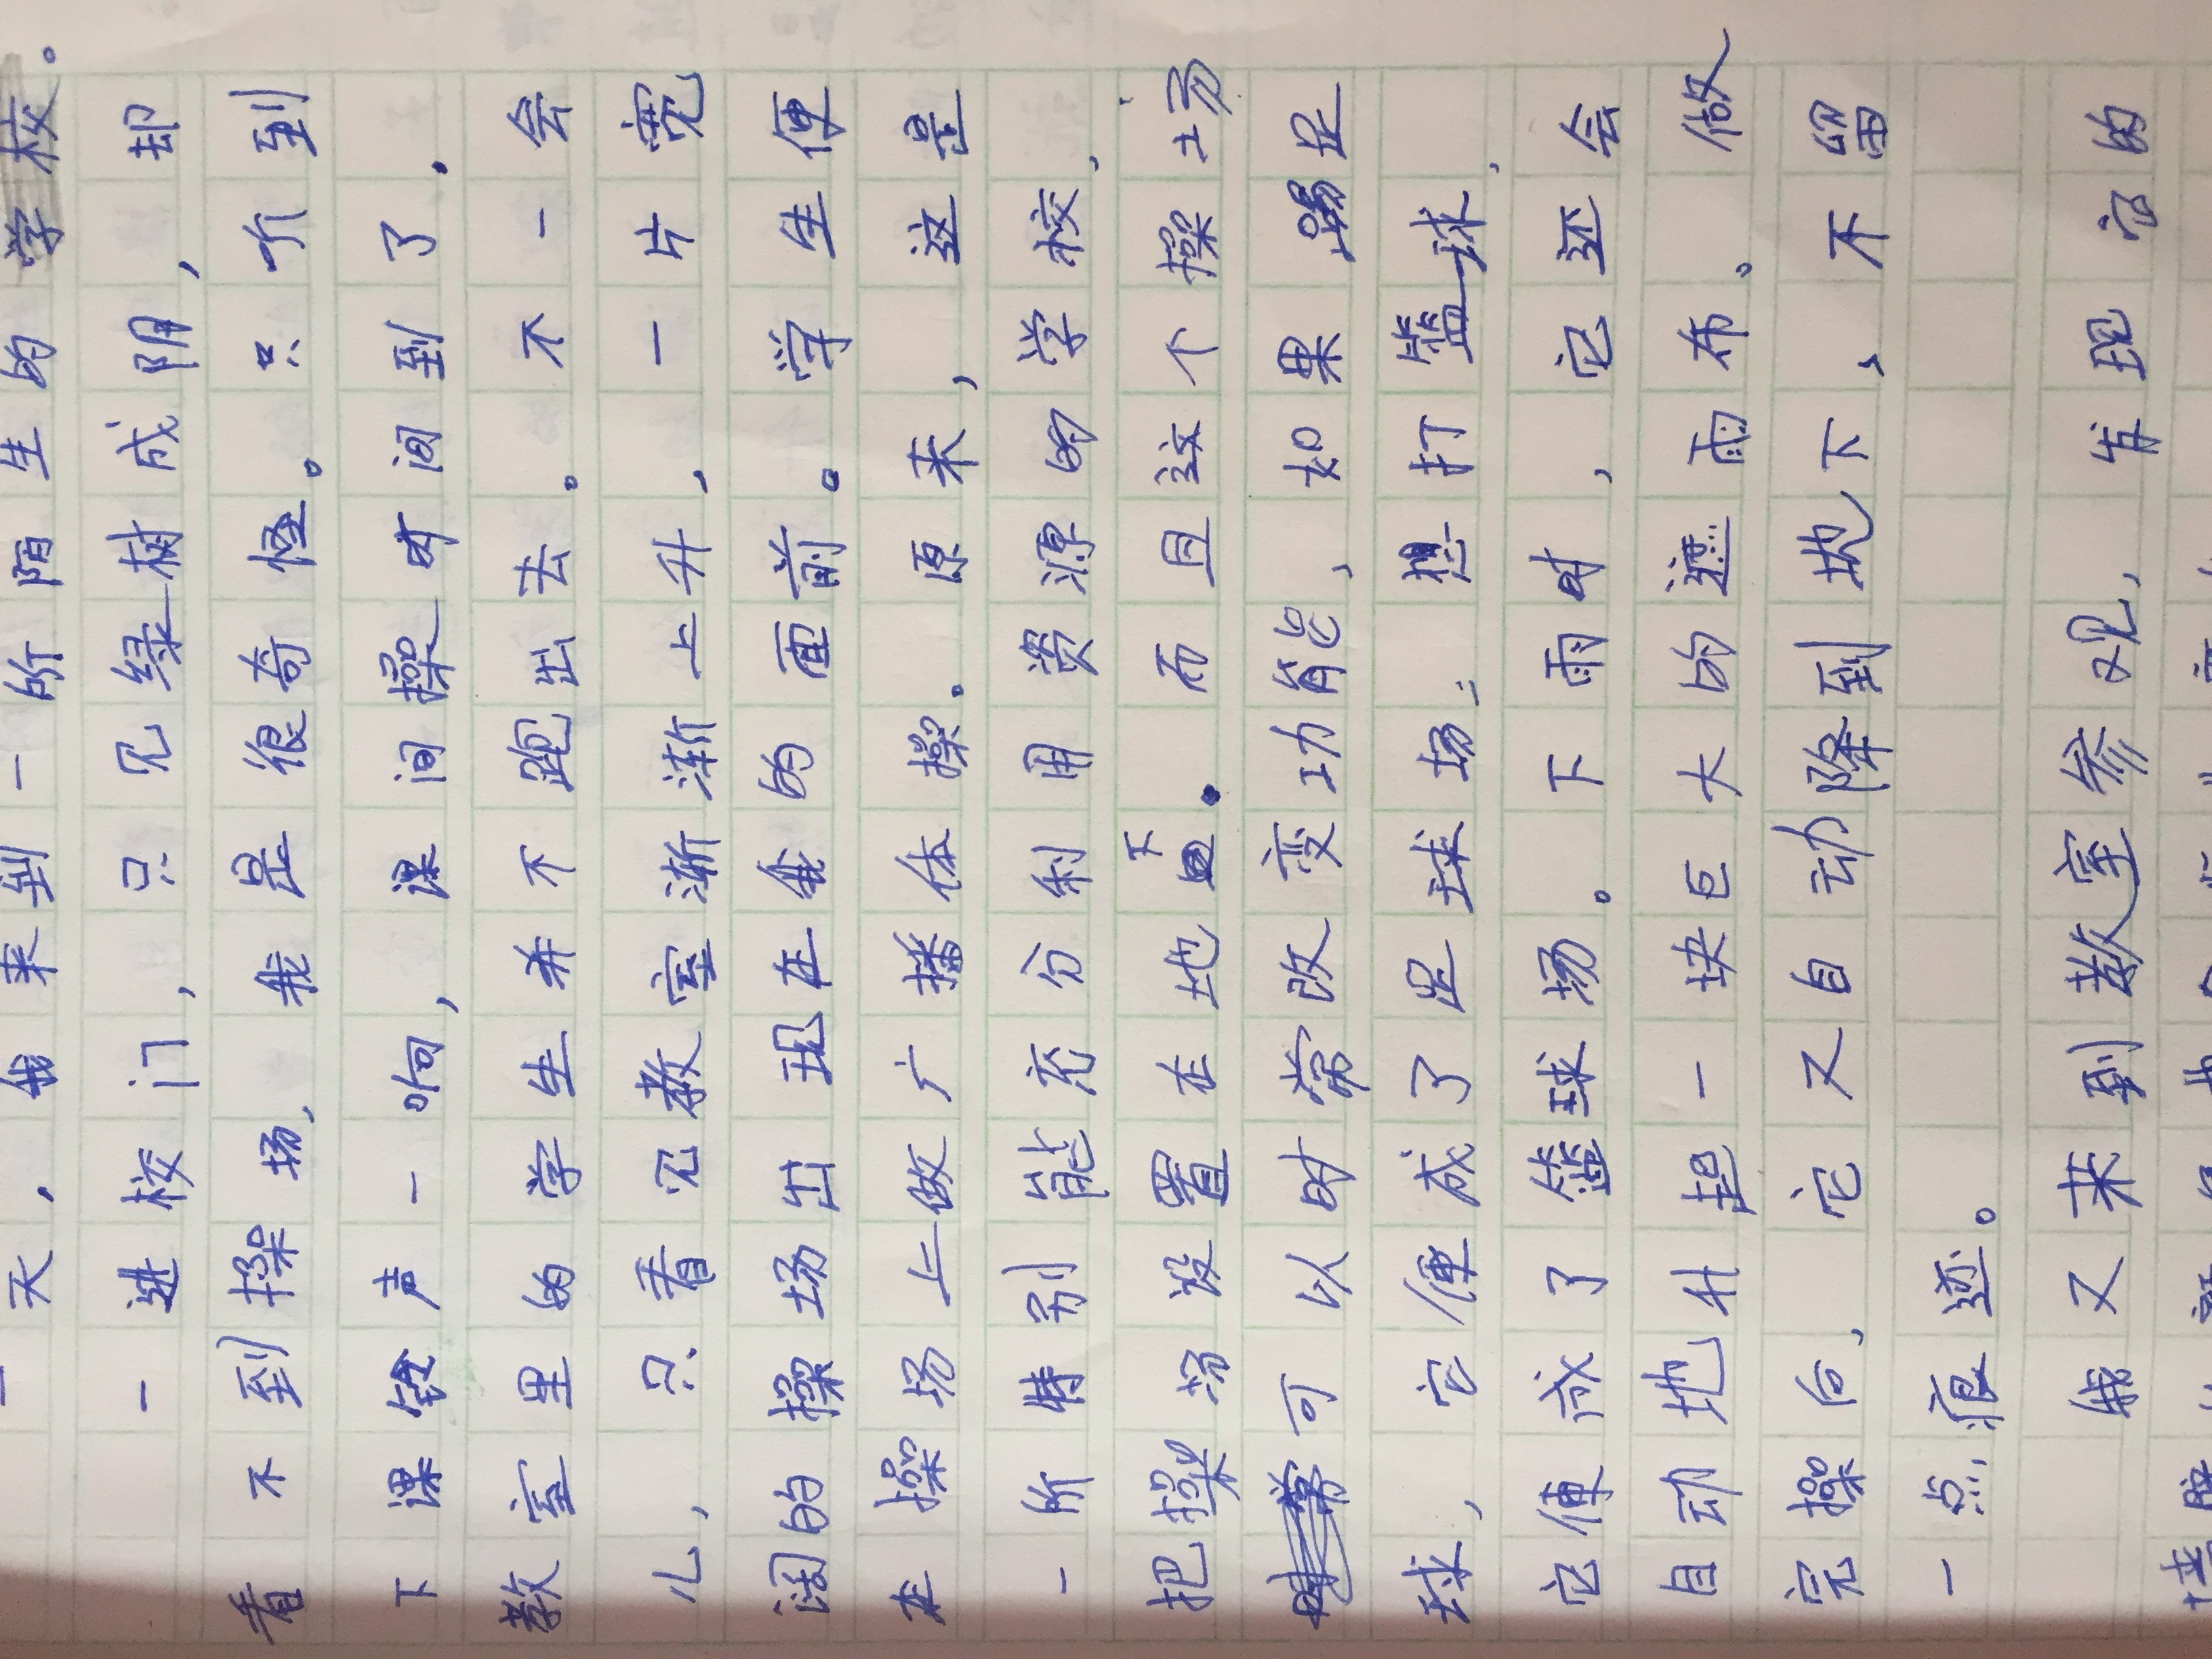 一天，我来到一所陌生的学校。
一进校门，只见绿树成阴，却
看不到操场，我是很奇怪。只听到
下课铃声一响，课间操时间到了，
教室里的学生并不跑出去。不一会
儿，只看见教室渐渐上升，一片宽
阔的操场出现在我的面前。学生便
在操场上做广播体操。原来，这是
一所特别能充分利用资源的学校，
把操场设置在地下。而且这个操场
可以时常改变功能，如果踢足
球，它便成了足球场；想打篮球，
它便成了篮球场。下雨时，它还会
自动地升起一块巨大的遮雨布。做
完操后，它又自动降到地下，不留
一点痕迹。
我又来到教室参观，发现它的